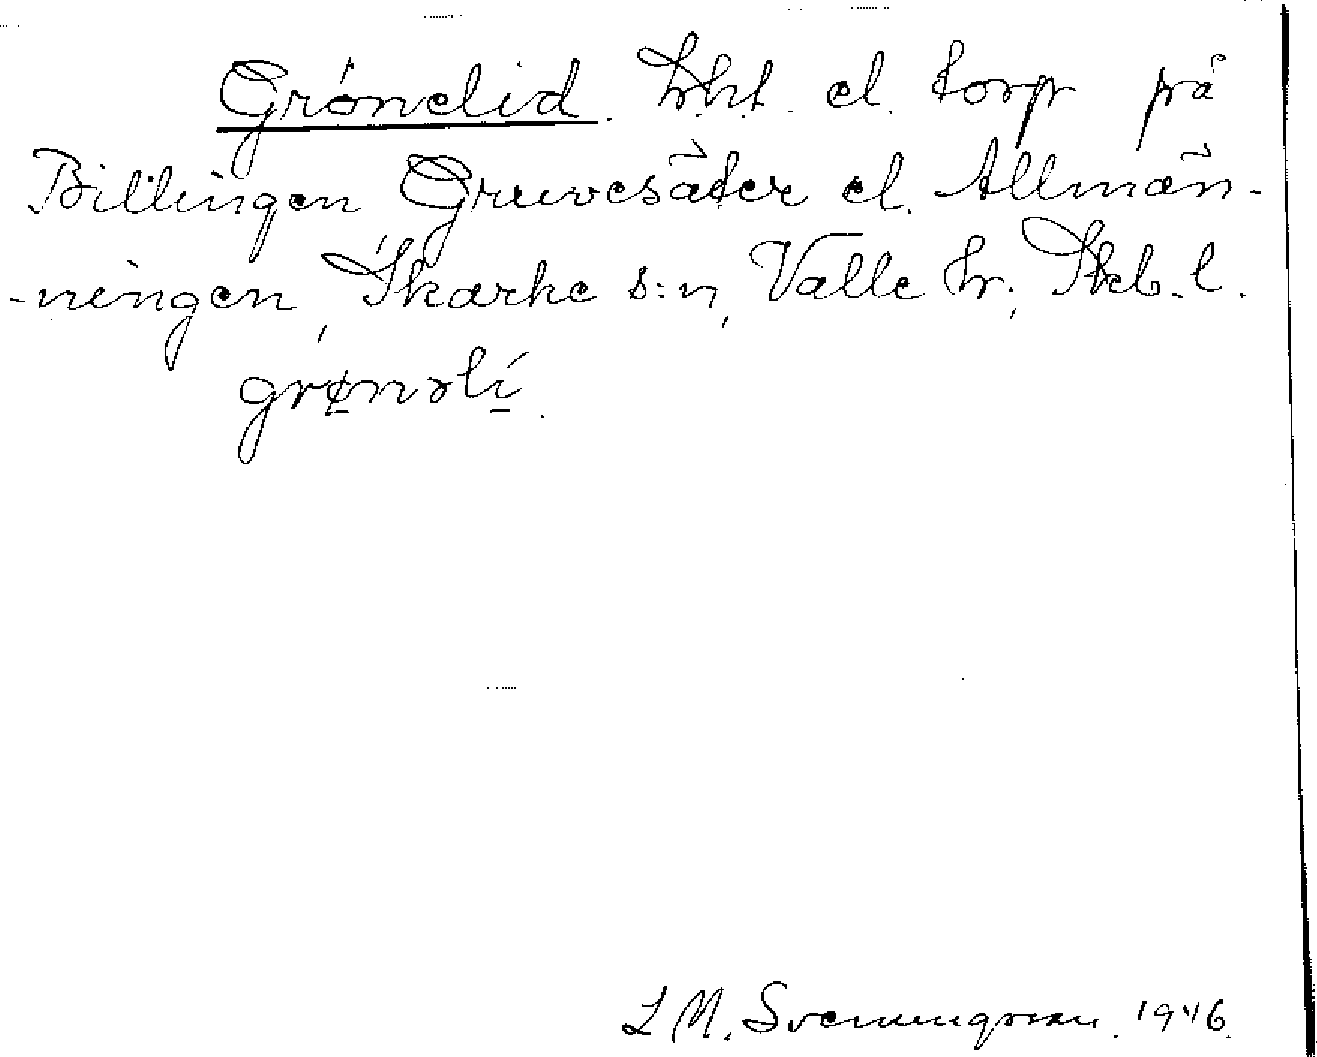 Grönelid. lht. el. torp på
Billingen Gruvesäter el. Allmän-
-ningen, Skarke s:n, Valle hr, Skb. l.
grønəlí.
L M. Svenungsson. 1946.